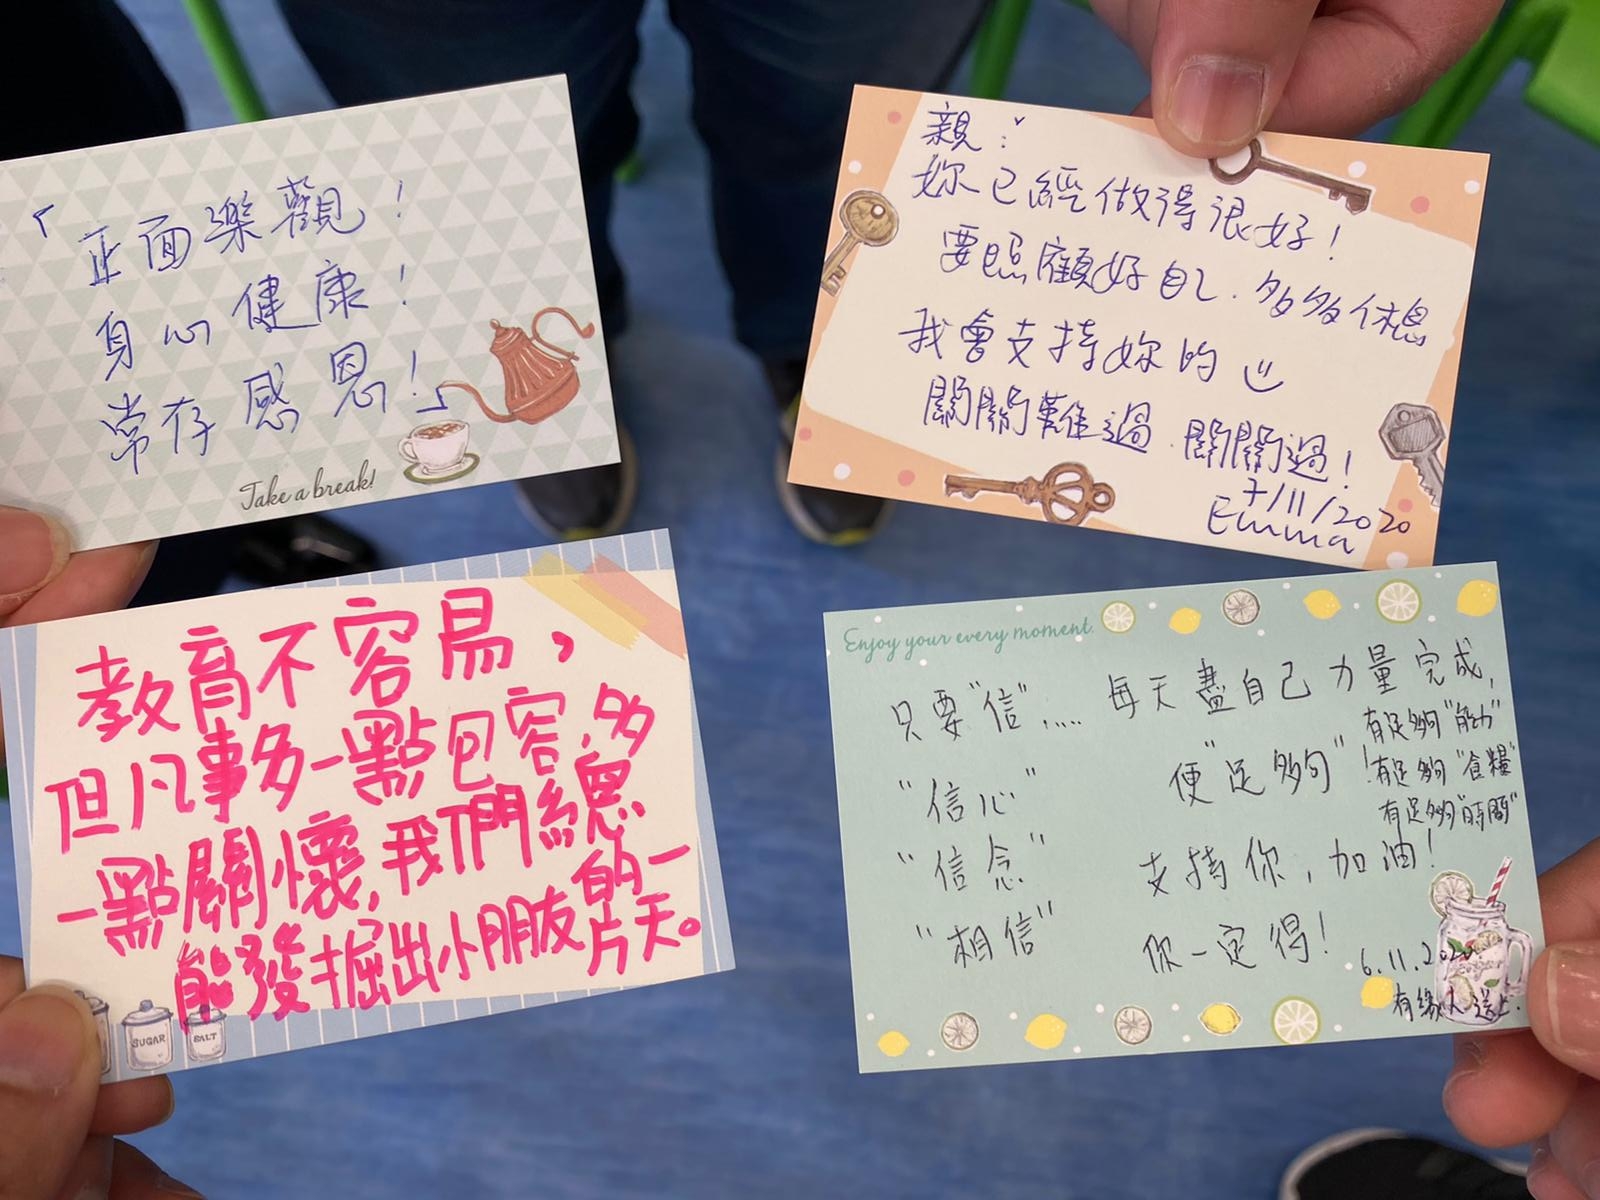 「正面樂觀！
身心健康！
常存感恩！」
Take a break!
親：
妳已經做得很好！
要照顧好自己．多多休息
我會支持妳的
關關難過．關關過！
7/11/2020
Emma
教育不容易，
但凡事多一點包容，多
一點關懷，我們總
能發掘出小朋友的一
片天。
SUGAR
SALT
Enjoy your every moment.
只要"信"：....
"信心"
"信念"
"相信"
每天盡自己力量完成，
便"足夠"！
有足夠"能力"
有足夠"食糧"
有足夠"時間"
支持你，加油！
你一定得！
6.11.2020
有緣人送上.